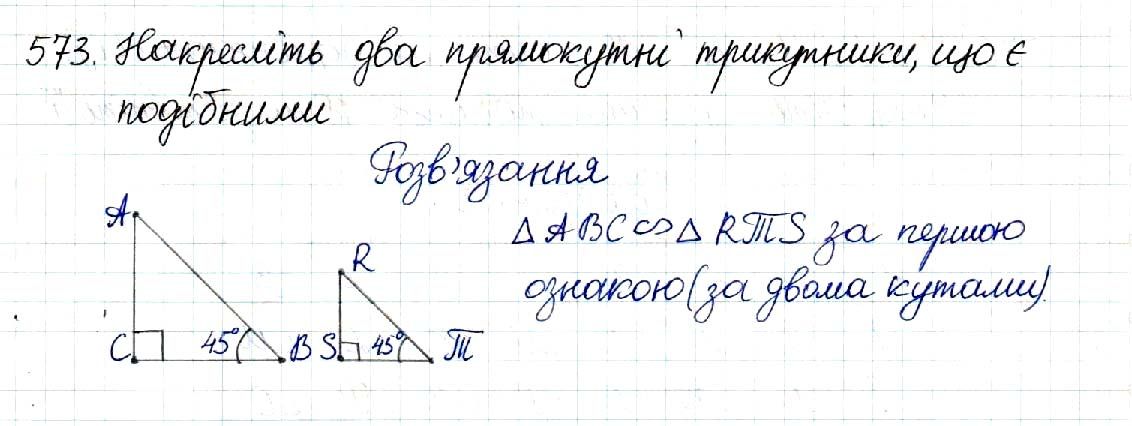 573. Накресліть два прямокутні трикутники, що є
подібними
Розв'язання
A
R
△ABC ∽ △RTS за першою
ознакою (за двома кутами).
C 45° B S 45° T